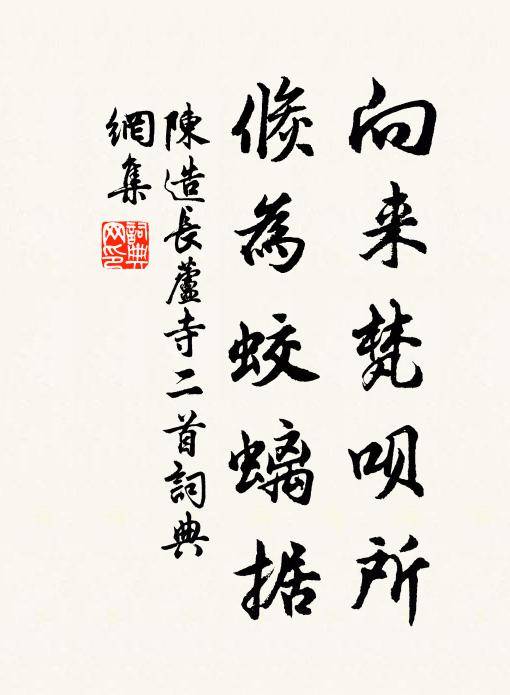 向来梵呗所
倏為蛟螭据
陳造長蘆寺二首詞典
網集
詞典
网印